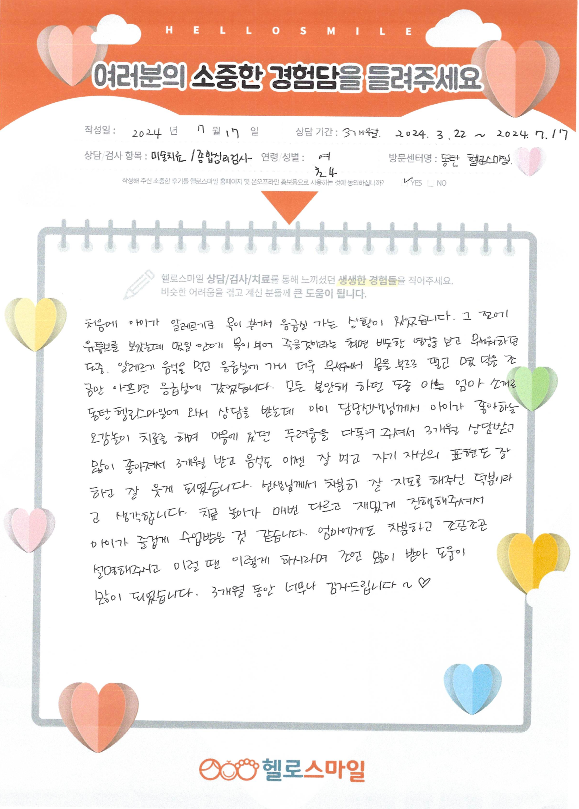 HELLOSMILE
여러분의 소중한 경험담을 들려주세요
작성일 : 2024 년 7 월 17 일 상담 기간 : 3개월. 2024. 3. 22 ~ 2024. 7. 17
상담 검사 항목 : 미술치료 / 종합심리검사 연령 성별 : 여 초4 방문센터명 : 동탄 헬로스마일.
작성해 주신 소중한 수기를 헬로스마일 홈페이지 및 온오프라인 홍보용으로 사용하는 것에 동의하십니까? ✓YES □ NO
헬로스마일 상담/검사/치료를 통해 느끼셨던 생생한 경험들을 적어주세요.
비슷한 어려움을 겪고 계신 분들께 큰 도움이 됩니다.
처음에 아이가 알레르기로 목이 부어서 응급실 가는 상황이 있었습니다. 그 전에
유튜브를 보았는데 며칠 안에 목이 부어 죽을것이라는 화면 비슷한 영향을 받고 무서워하던
도중, 알레르기 음식을 먹고 응급실에 가니 더욱 무서워서 몸을 부르르 떨고 며칠 먹을 조
금만 아프면 응급실에 갔었습니다. 모든 불안해 하던 도중 아는 엄마 소개로
동탄헬로스마일에 와서 상담을 받는데 아이 담당선생님께서 아이가 좋아하는
오감놀이 치료를 하며 마음에 있던 두려움을 다독여 주셔서 3개월 상담받고
많이 좋아져서 3개월 받고 음식도 이젠 잘 먹고 자기 자신의 표현도 잘
하고 잘 웃게 되었습니다. 선생님께서 차분히 잘 지도를 해주신 덕분이라
고 생각합니다. 치료 놀이가 매번 다르고 재밌게 진행해주셔서
아이가 즐겁게 수업받은 것 같습니다. 엄마에게도 차분하고 조곤조곤
설명해주시고 이럴 땐 이렇게 하시라며 조언 많이 받아 도움이
많이 되었습니다. 3개월 동안 너무나 감사드립니다 ~ ♡
헬로스마일